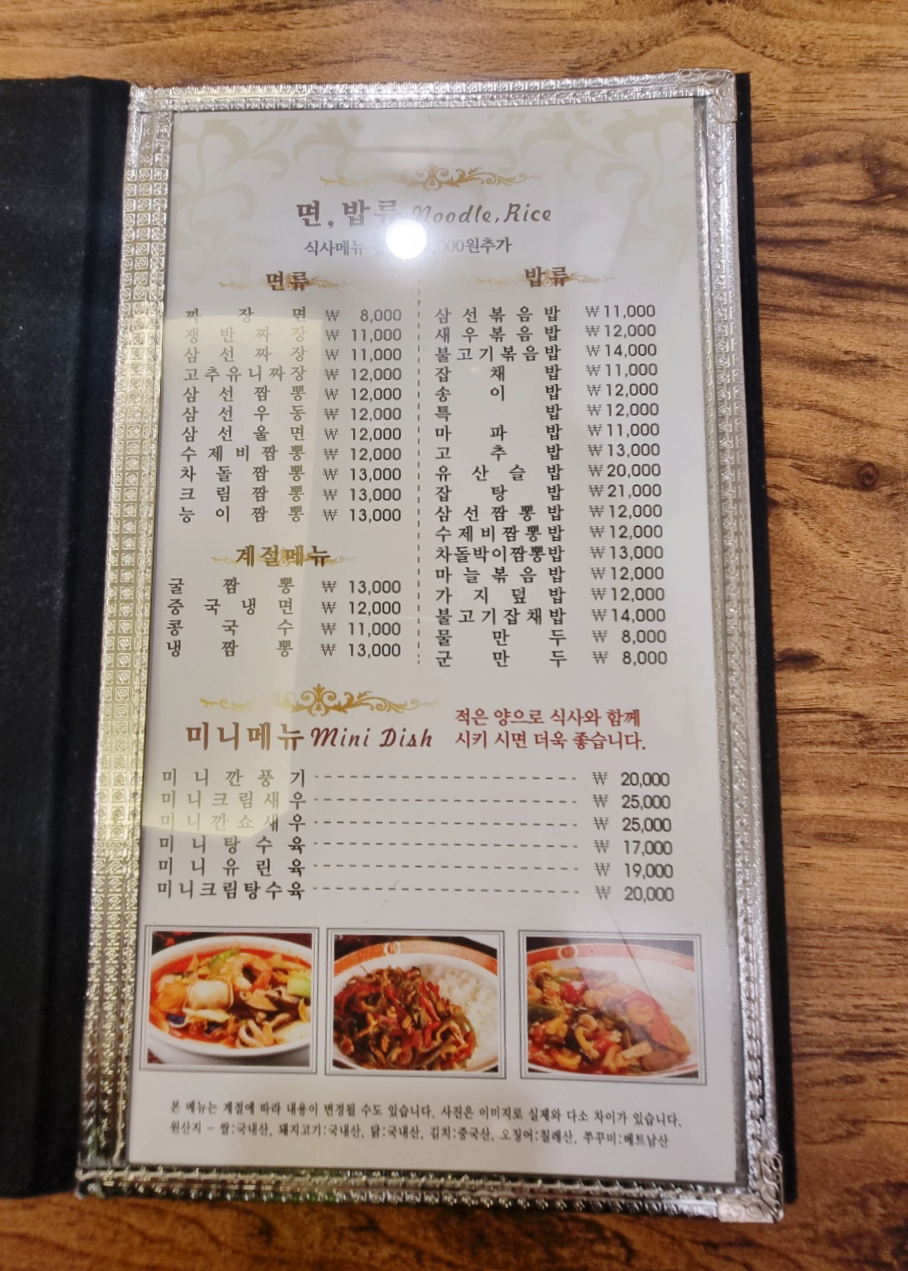 면, 밥류 Noodle, Rice
식사메뉴 000원추가
면류
짜장면 ₩ 8,000
쟁반짜장 ₩ 11,000
삼선짜장 ₩ 11,000
고추유니짜장 ₩ 12,000
삼선짬뽕 ₩ 12,000
삼선우동 ₩ 12,000
삼선울면 ₩ 12,000
수제비짬뽕 ₩ 12,000
차돌짬뽕 ₩ 13,000
크림짬뽕 ₩ 13,000
능이짬뽕 ₩ 13,000
계절메뉴
굴짬뽕 ₩ 13,000
중국냉면 ₩ 12,000
콩국수 ₩ 11,000
냉짬뽕 ₩ 13,000
밥류
삼선볶음밥 ₩11,000
새우볶음밥 ₩12,000
불고기볶음밥 ₩14,000
잡채밥 ₩11,000
송이밥 ₩12,000
특밥 ₩12,000
마파밥 ₩11,000
고추밥 ₩13,000
유산슬밥 ₩20,000
잡탕밥 ₩21,000
삼선짬뽕밥 ₩12,000
수제비짬뽕밥 ₩12,000
차돌박이짬뽕밥 ₩13,000
마늘볶음밥 ₩12,000
가지덮밥 ₩12,000
불고기잡채밥 ₩14,000
물만두 ₩ 8,000
군만두 ₩ 8,000
미니메뉴 Mini Dish
적은 양으로 식사와 함께
시키 시면 더욱 좋습니다.
미니깐풍기 ₩ 20,000
미니크림새우 ₩ 25,000
미니깐쇼새우 ₩ 25,000
미니탕수육 ₩ 17,000
미니유린육 ₩ 19,000
미니크림탕수육 ₩ 20,000
본 메뉴는 계절에 따라 내용이 변경될 수도 있습니다. 사진은 이미지로 실제와 다소 차이가 있습니다.
원산지 = 쌀:국내산, 돼지고기:국내산, 닭:국내산, 김치:중국산, 오징어:칠레산, 쭈꾸미:베트남산